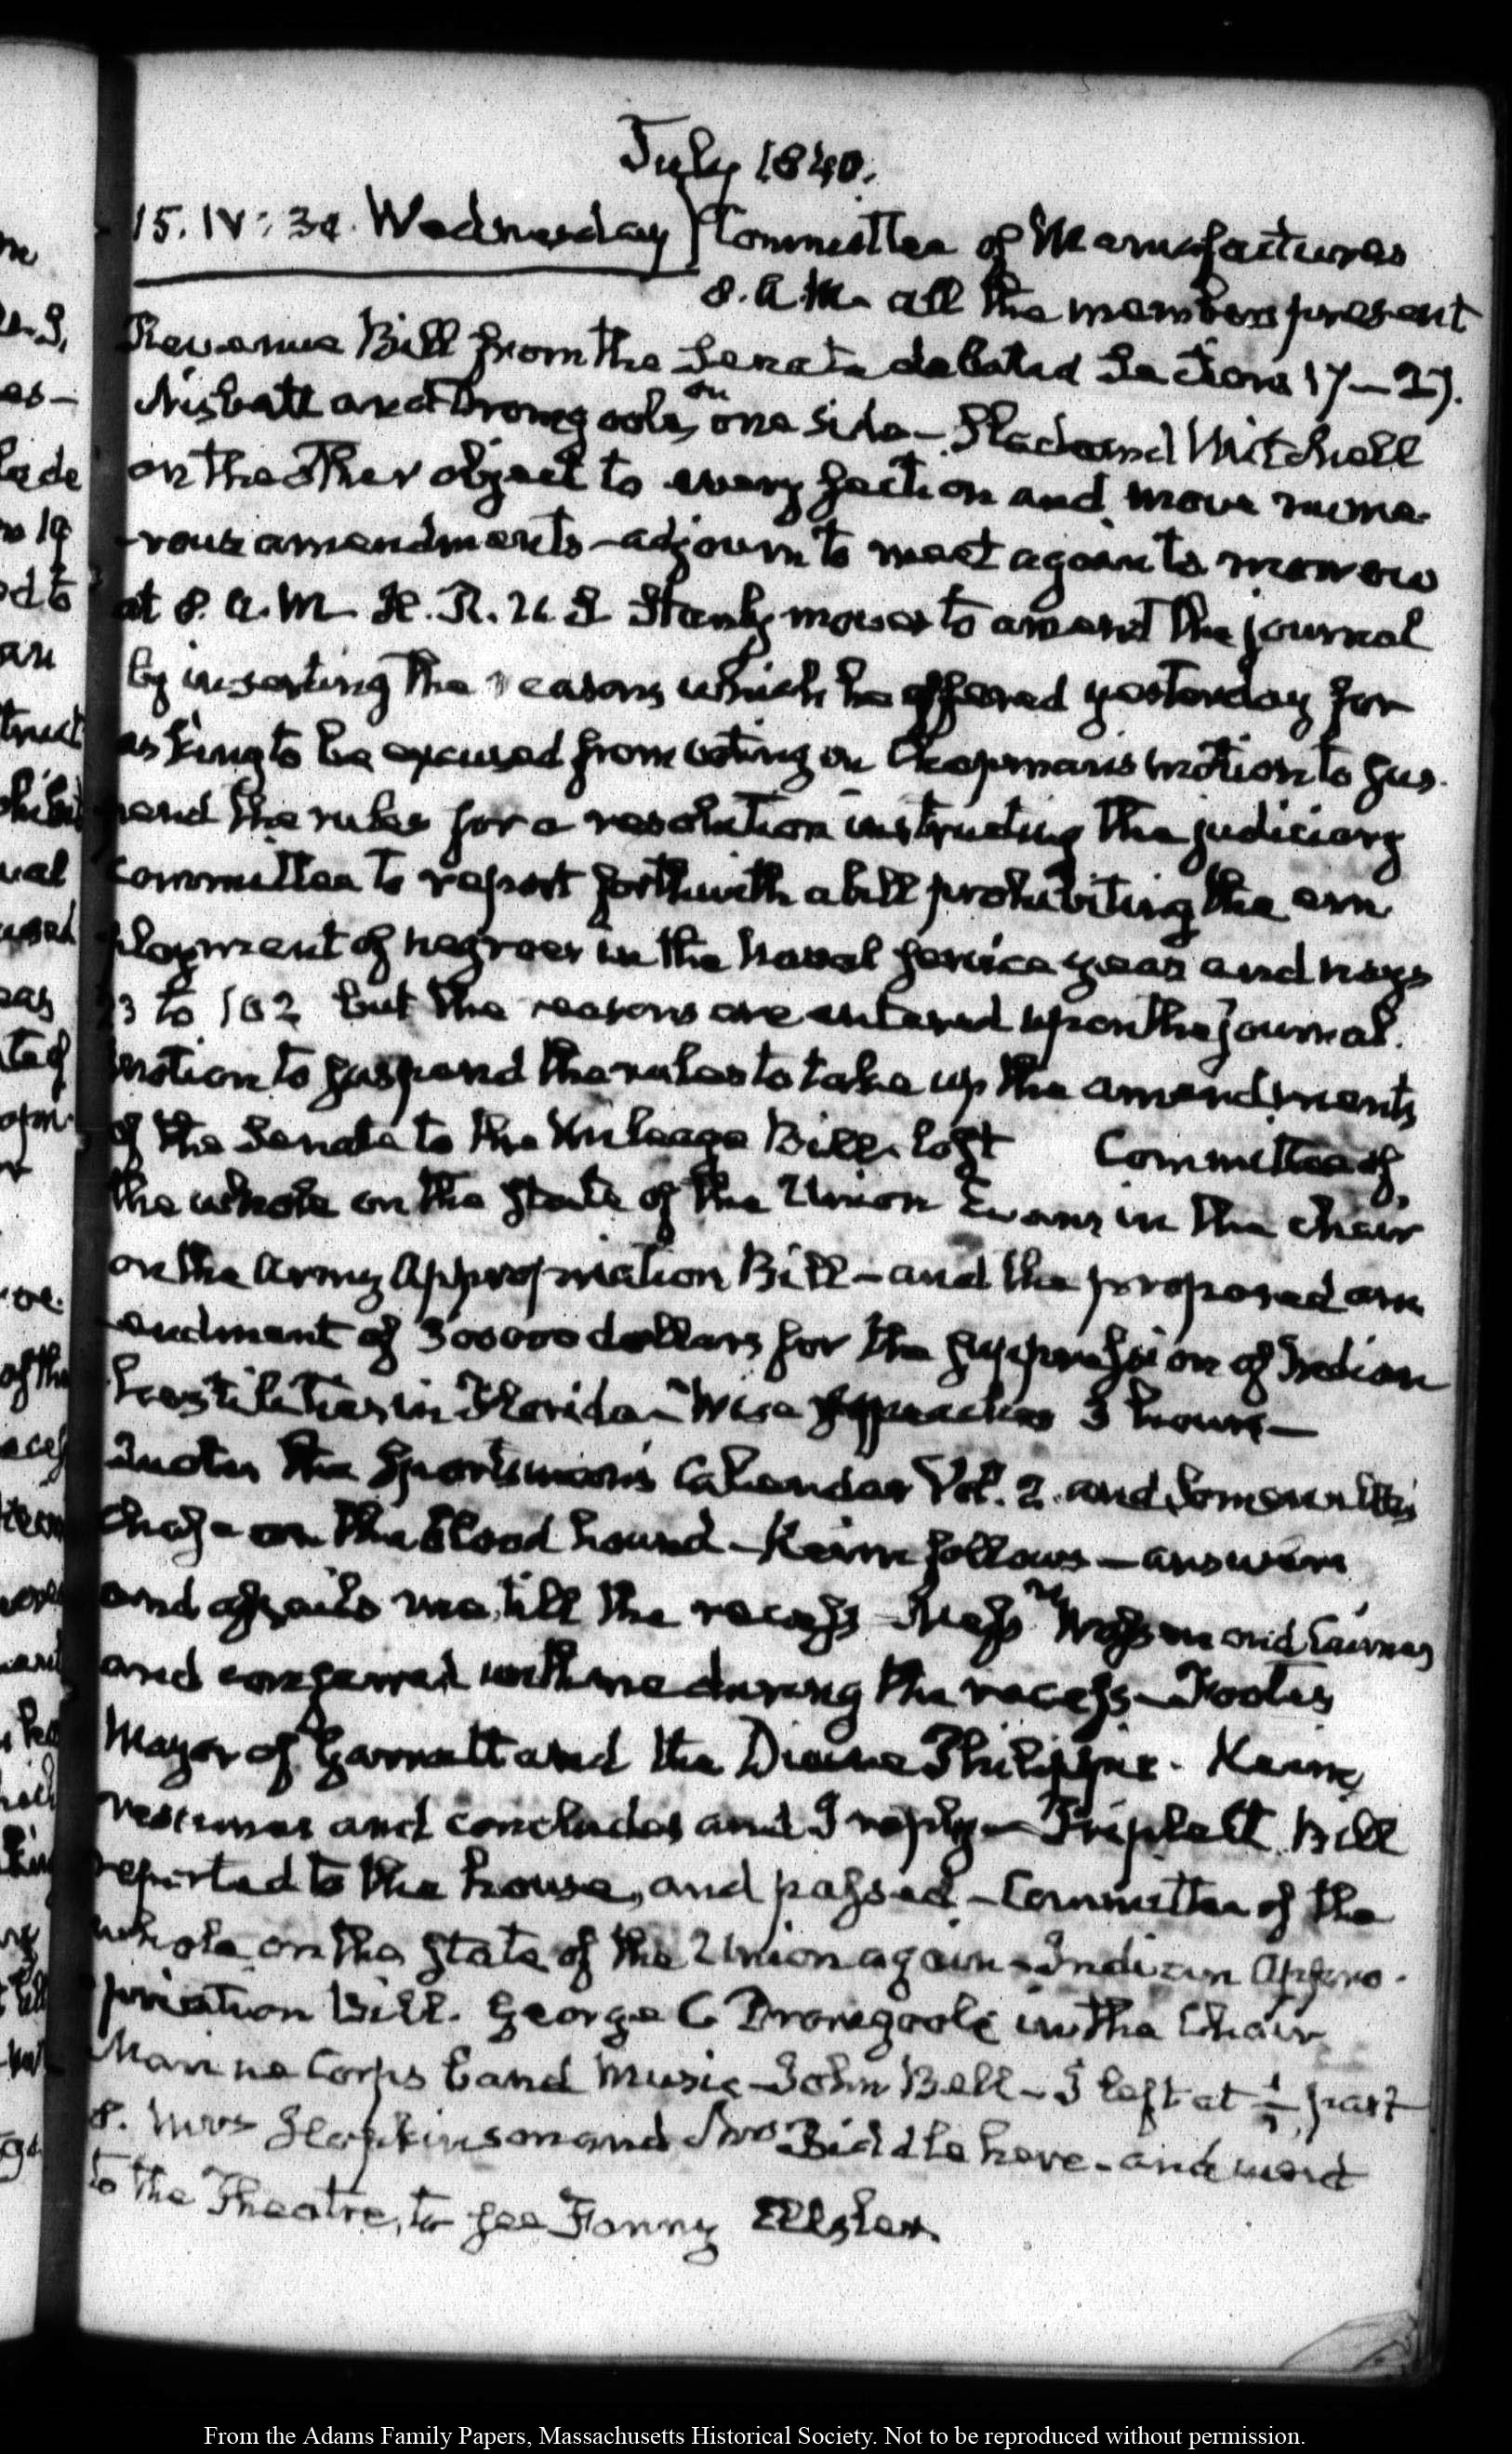 July 1840.
15. IV: 30. Wednesday Committee of Manufactures
8. A.M. all the members present
Revenue Bill from the Senate debated Sections 17—27.
Nisbett and Dromgoole, on one side—Slade and Mitchell
on the other object to every section and move nume-
-rous amendments—adjourn to meet again to morrow
at 8. A.M. H.R. U.S. Stanly moves to amend the journal
by inserting the reasons which he offered yesterday for
asking to be excused from voting on Chapman's motion to sus-
pend the rules for a resolution instructing the judiciary
committee to report forthwith a bill prohibiting the em-
ployment of negroes in the naval service yeas and nays
to but the reasons are entered upon the journal.
motion to suspend the rules to take up the amendments
of the Senate to the Mileage Bill. lost Committee of
the whole on the state of the Union Evans in the chair
on the Army Appropriation Bill—and the proposed am
-endment of 300000 dollars for the suppression of Indian
hostilities in Florida—Wise 3 hours—
Quotes the Sportsman's Calendar Vol. 2. and
Chase on the blood hound—Keim follows—answers
and assails me, till the recess— and
and conferred with me during the recess—Foote's
Mayor of Garratt and the Divine Philippic. Keim
resumes and concludes and I reply—Triplett Bill
reported to the house, and passed—Committee of the
whole on the state of the Union again—Indian Appro-
priation Bill. George C Dromgoole in the Chair
Marine Corps band Music—John Bell—I left at ½ past
8. Mrs Hopkinson and Mrs Biddle here—and went
to the Theatre, to see Fanny Elssler.